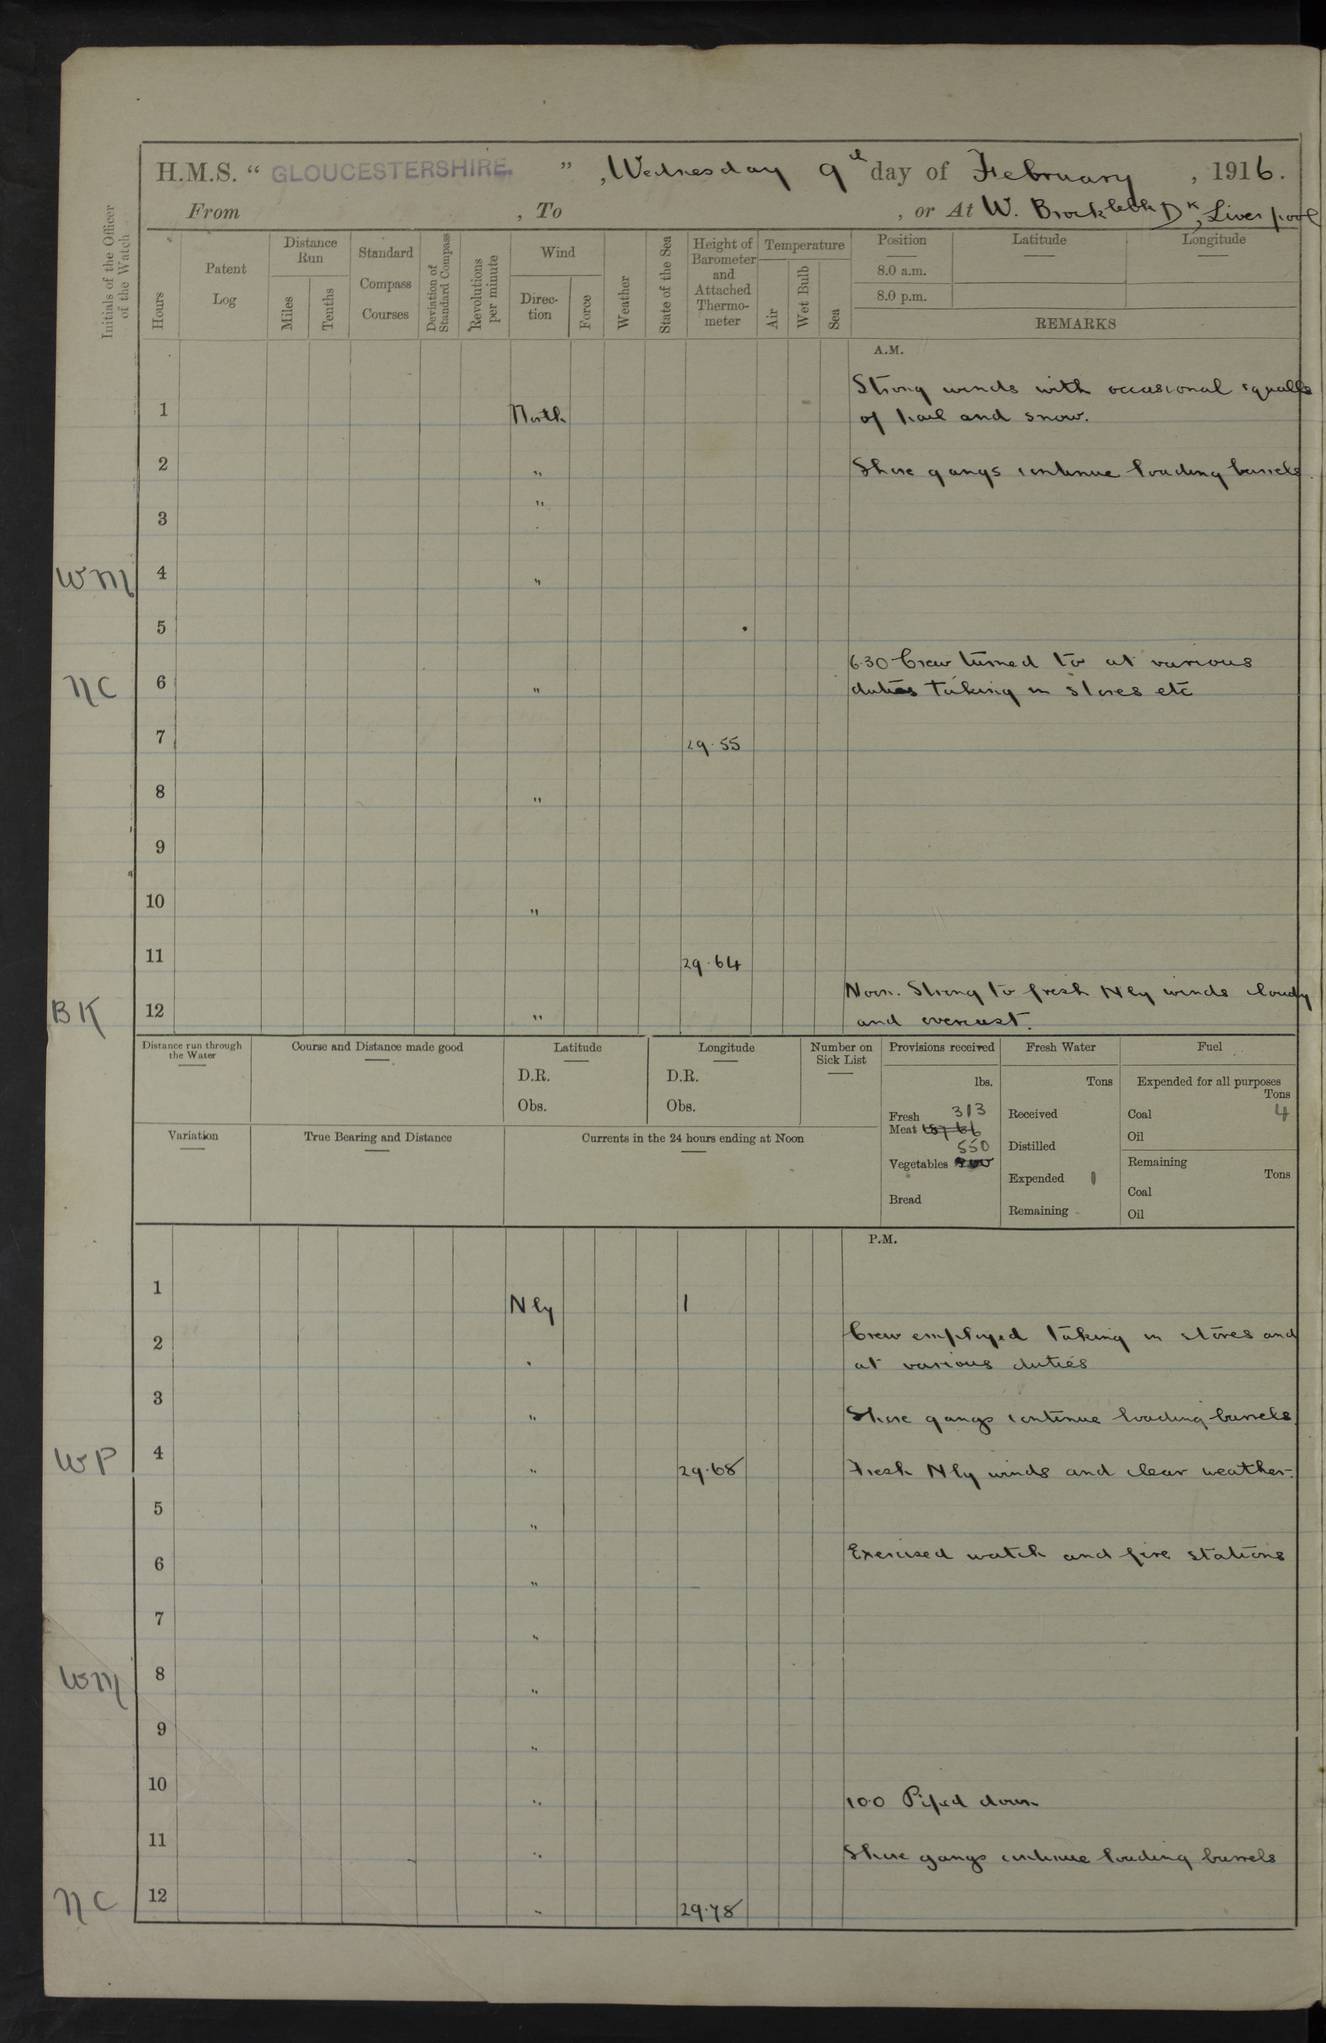 H.M.S. “ GLOUCESTERSHIRE. ” , Wednesday 9th day of February , 1916.
From , To , or At W. Brocklebk Dk, Liverpool
Initials of the Officer of the Watch
Hours
Patent Log
Distance Run
Miles
Tenths
Standard Compass Courses
Deviation of Standard Compass
Revolutions per minute
Wind
Direc-tion
Force
Weather
State of the Sea
Height of Barometer and Attached Thermo-meter
Temperature
Air
Wet Bulb
Sea
Position Latitude Longitude
8.0 a.m.
8.0 p.m.
REMARKS
A.M.
Strong winds with occasional squalls
1 North of hail and snow.
2 " Shore gangs continue loading barrels.
3 "
WM 4 "
5
6·30 Crew turned to at various
NC 6 " duties taking in stores etc
7 29·55
8 "
9
10 "
11 29·64
Noon. Strong to fresh Nly winds cloudy
BK 12 " and overcast.
Distance run through the Water
Course and Distance made good
Latitude
D.R.
Obs.
Longitude
D.R.
Obs.
Number on Sick List
Provisions received
lbs.
Fresh Meat 313
Vegetables 550
Bread
Fresh Water
Tons
Received
Distilled
Expended 1
Remaining
Fuel
Expended for all purposes
Tons
Coal 4
Oil
Remaining
Tons
Coal
Oil
Variation
True Bearing and Distance
Currents in the 24 hours ending at Noon
P.M.
1 Nly 1
Crew employed taking in stores and
2 " at various duties
3 " Shore gangs continue loading barrels.
WP 4 " 29·68 Fresh Nly winds and clear weather.
5 "
Exercised watch and fire stations
6 "
7 "
WM 8 "
9 "
10 " 10·0 Piped down
11 " Shore gangs continue loading barrels
NC 12 " 29·78